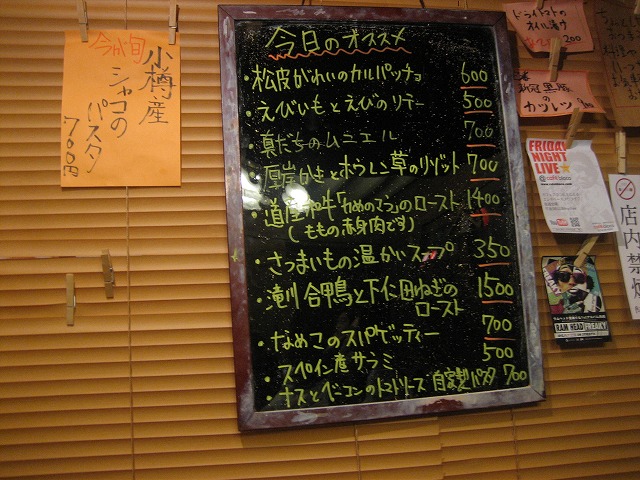 今が旬
小樽産
シャコの
パスタ
700円
今日のオススメ
・松皮がれいのカルパッチョ 600
・えびいもとえびのソテー 500
・真だちのムニエル 700
・厚岸かきとホウレン草のリゾット 700
・道産和牛「かめのこう」のロースト 1400
(ももの赤身肉です)
・さつまいもの温かいスープ 350
・滝川合鴨と下仁田ねぎの
ロースト 1500
・なめこのスパゲッティー 700
・スペイン産サラミ 500
・ナスとベーコンのトマトソース 自家製パスタ 700
ドライトマトの
オイル漬け
200
黒豚の
カツレツ
FRIDAY
NIGHT
LIVE
店内禁煙
RAM HEAD
FREAKY